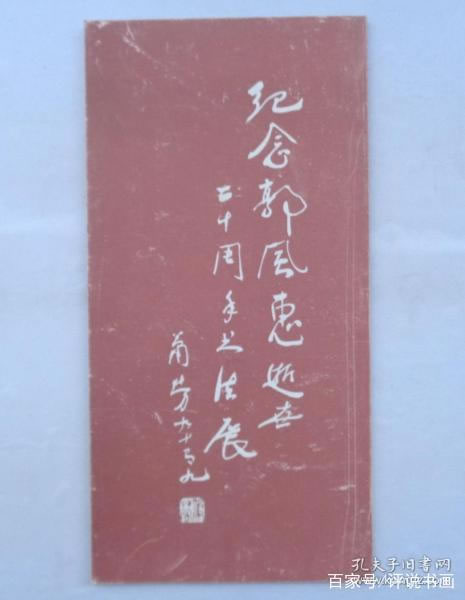 纪念郭风惠逝世
二十周年书法展
萧劳九十有九
孔夫子旧书网
百家号/评说书画